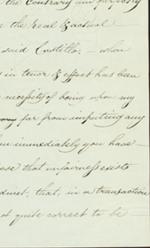 the contrary an
the real & actual
said Costillo; — when
in tenor & effect has been
necessity of being upon my
far from imputing any
immediately you have —
that unfairness exists
that, in a transaction
not quite correct to be